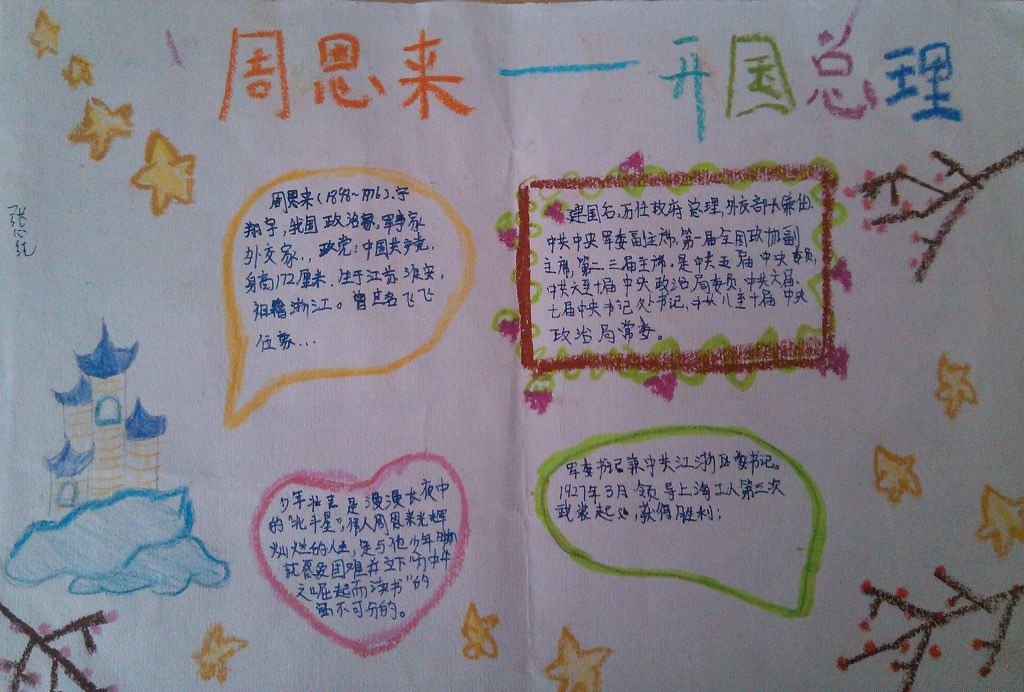 周恩来——开国总理
张心纯
周恩来(1898~1976),字
翔宇,我国政治家,军事家
外交家.,政党:中国共产党,
身高172厘米.生于江苏淮安,
祖籍浙江。曾在名飞飞
位家...
建国后,历任政府总理,外交部长兼任.
中共中央军委副主席,第一届全国政协副
主席,第二.三届主席,是中共五届中央委员,
中共六至十届中央政治局委员,中共六届.
七届中央书记处书记,中共八至十届中央
政治局常委。
少年壮志是漫漫长夜中
的"北斗星",伟人周恩来光辉
灿烂的人生,是与他少年时
就忧国难并立下"为中华
之崛起而读书"的
不可分的。
军委书记兼中共江浙区委书记。
1927年3月领导上海工人第三次
武装起,获得胜利;